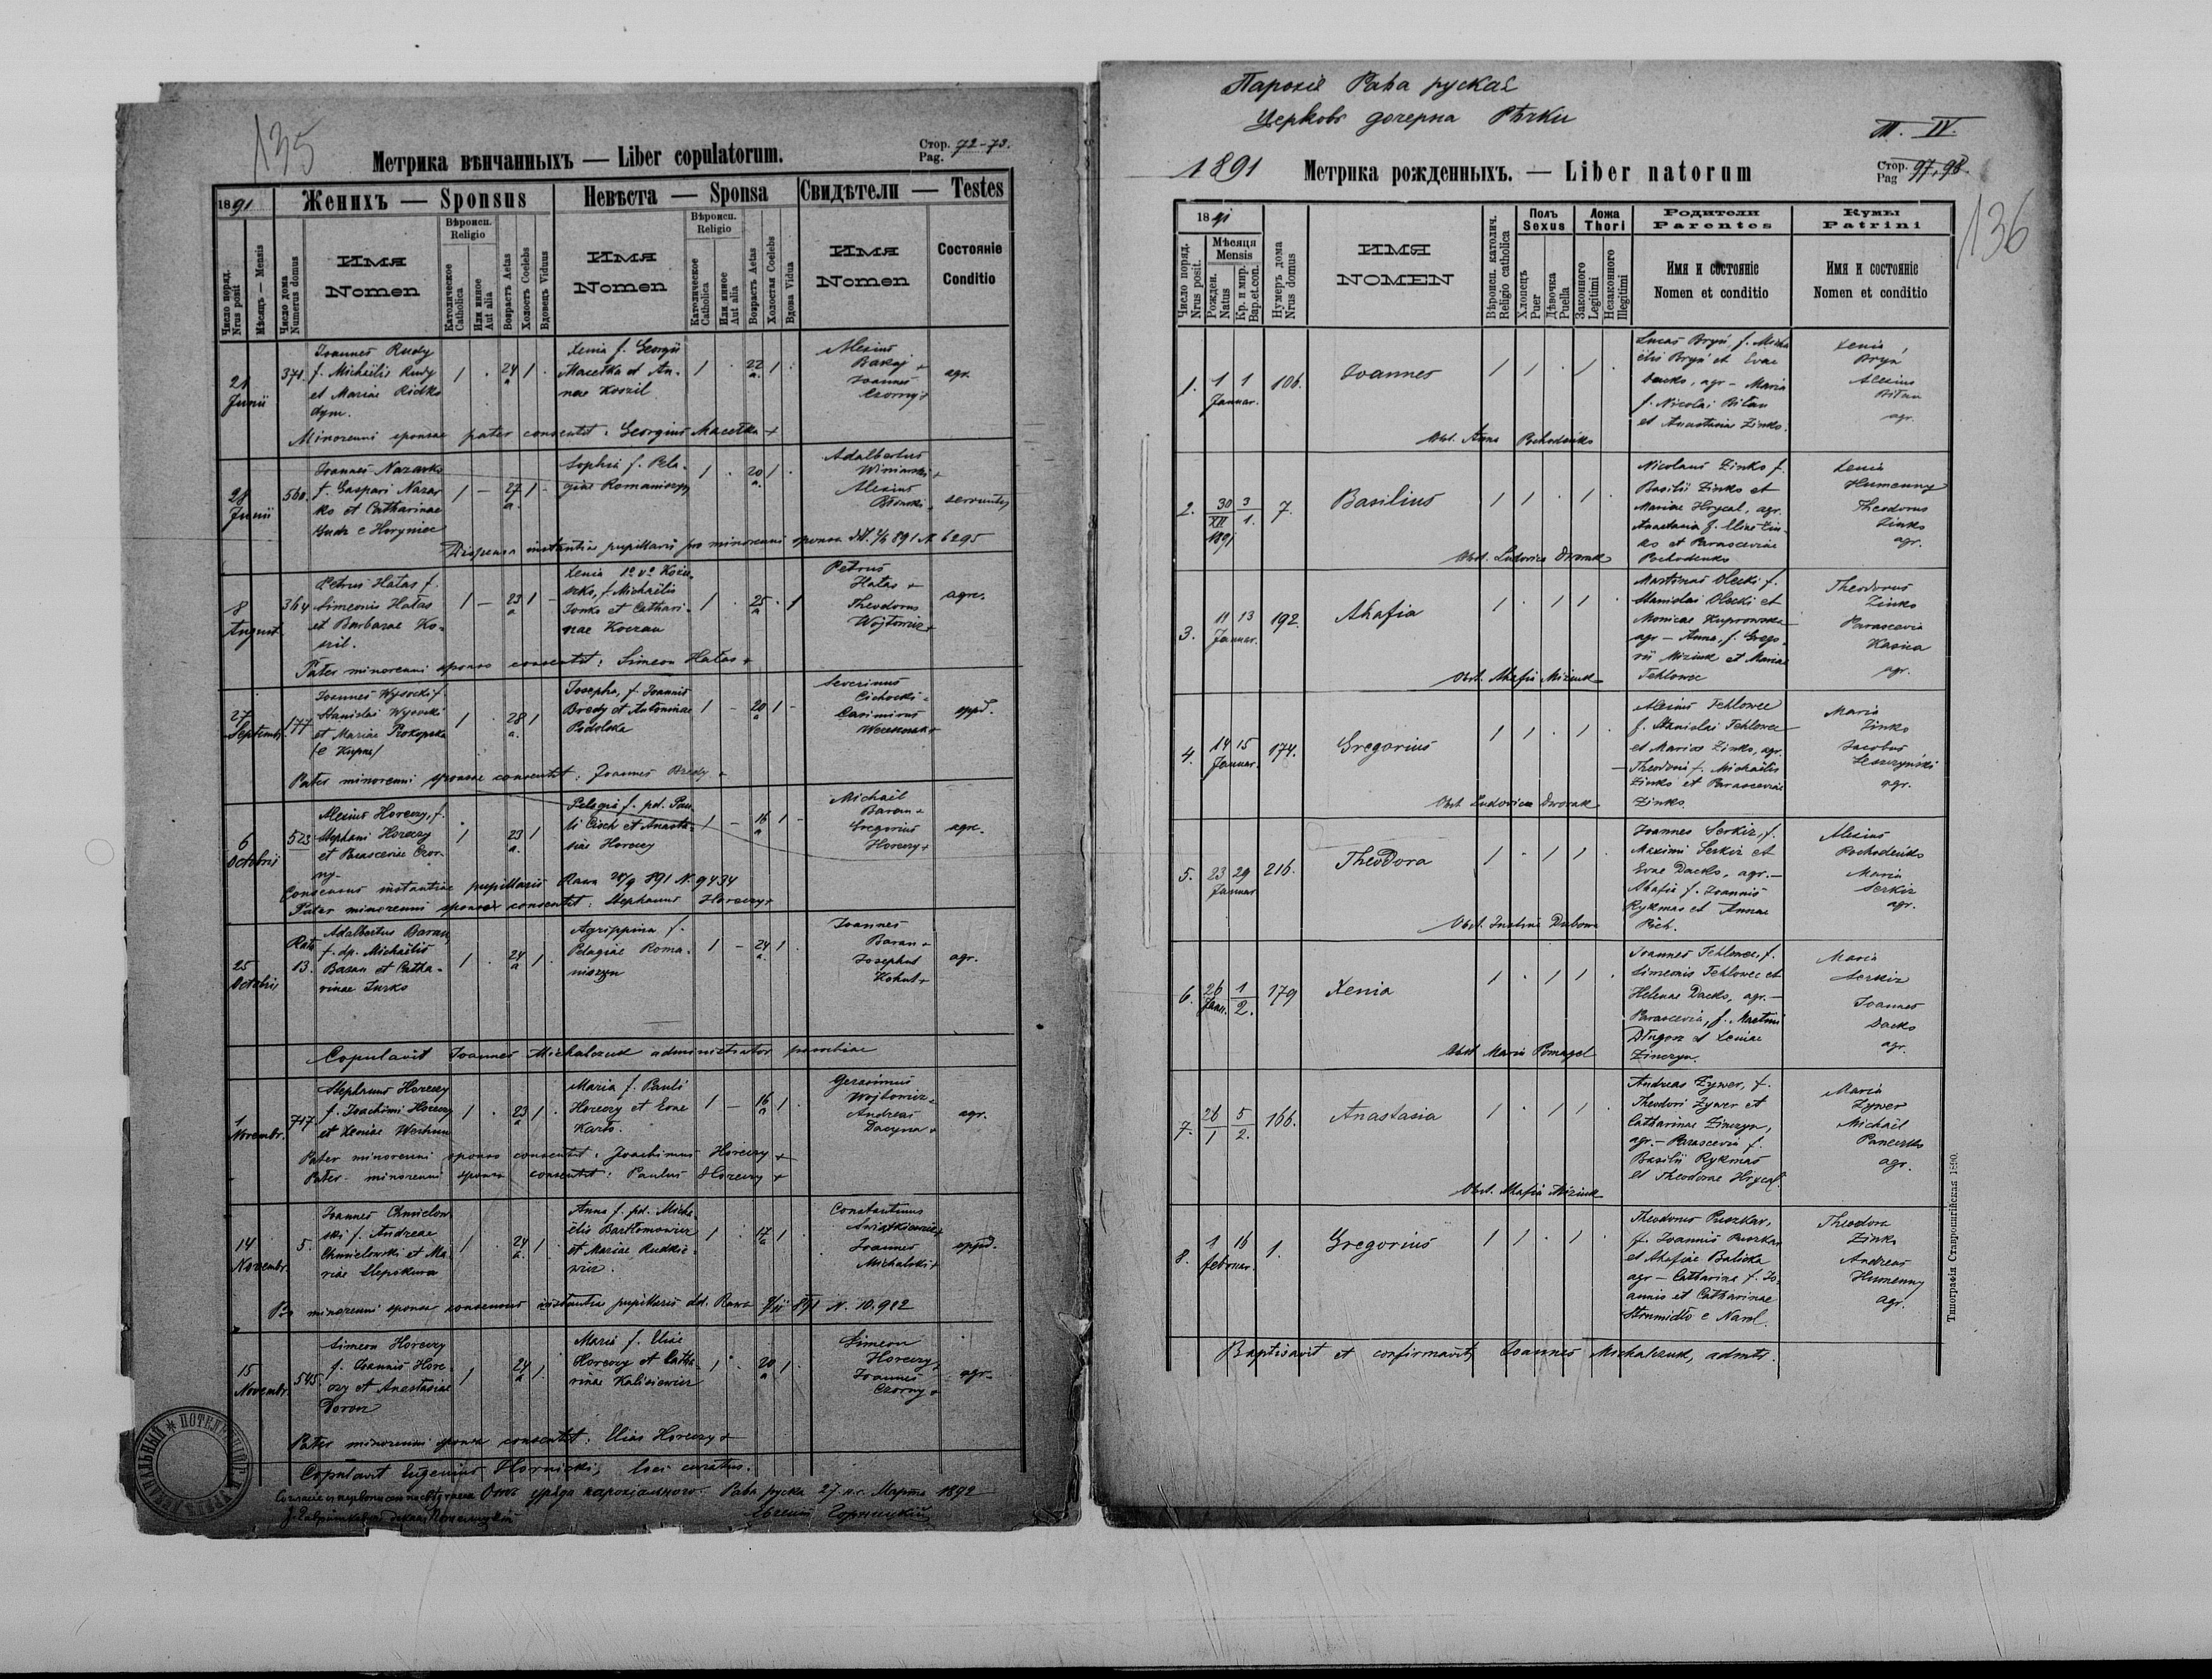 135
Метрика вѣнчанныхъ — Liber copulatorum.
Стор. 72-73.
Pag.
1891
Женихъ — Sponsus
Невѣста — Sponsa
Свидѣтели — Testes
Число поряд.
Nrus posit
Мѣсяцъ — Mensis
Число дома
Numerus domus
ИМЯ
Nomen
Вѣроисп.
Religio
Католическое
Catholica
Или иное
Aut alia
Возрастъ Aetas
Холостъ Coelebs
Вдовецъ Viduus
ИМЯ
Nomen
Вѣроисп.
Religio
Католическое
Catholica
Или иное
Aut alia
Возрастъ Aetas
Холостая Coelebs
Вдова Vidua
ИМЯ
Nomen
Состояніе
Conditio
21
Junii
371.
Joannes Rudy
f. Michaëlis Rudy
et Mariae Ridko
dym.
1 . 24 a 1 .
Xenia f. Georgii
Macełka et An-
nae Koszil
1 . 22 a. 1 .
Alexius
Baraj +
Joannes
Czorny +
agr.
Minorenni sponsae pater consentit: Georgius Macełka +
28
Junii
560.
Joannes Nazarko
f. Gaspari Nazar
ko et Catharinae
e Horyniec
1 — 27 a. 1 -
Sophia f. Pela-
giae Romaniszyn
1 . 20 a. 1 .
Adalbertus
Winiarski +
Alexius
servientes
Dispensa instantiae pupillaris pro minorenni sponsa dd. 4/6 891 N. 6295
8
August.
364
Petrus Hałas f.
Simeonis Hałas
et Barbarae Ko-
szil.
1 — 23 a 1 —
Xenia 1º vº Kozu-
szko, f. Michaëlis
Jonko et Cathari-
nae Koczan
1 . 25 a . 1
Petrus
Hałas +
Theodorus
Wojtowicz +
agr.
Pater minorenni sponso consentit: Simeon Hałas +
27
Septembr.
177
Joannes Wysocki f.
Stanislai Wysocki
et Mariae Prokopska
/e Kupna/
1 . 28 a. 1
Josepha, f. Joannis
Bredy et Antoninae
Podolska
1 — 20 a 1 -
Severinus
Cichocki +
Casimirus
oppid.
Pater minorenni sponsae consentit: Joannes Bredy +
6
Octobris
523
Alexius Horeczy, f.
Stephani Horeczy
et Parasceviae Czor-
ny.
1 . 23 a. 1
Pelagia f. pd. Pau-
li Cioch et Anasta-
siae Horeczy
1 — 16 a 1 -
Michaël
Baran +
Gregorius
Horeczy +
agr.
Consensus instantiae pupillaris Rawa 28/9 891 N. 9434
Pater minorenni sponso consentit: Stephanus Horeczy +
25
Octobris
Rata
13.
Adalbertus Baran,
f. dp. Michaëlis
Baran et Catha-
rinae Jurko
1 . 24 a 1 .
Agrippina f.
Pelagiae Roma-
niszyn
1 — 24 a. 1 .
Joannes
Baran +
Josephus
Kohut +
agr.
Copulavit Joannes Michalczuk administrator parochiae
1
Novembr.
717.
Stephanus Horeczy
f. Joachimi Horeczy
et Xeniae Werhun
1 . 23 a 1 .
Maria f. Pauli
Horeczy et Evae
Karto.
1 — 16 a 1 .
Gerasimus
Wojtowicz +
Andreas
Dacyna +
agr.
Pater minorenni sponso consentit: Joachimus Horeczy +
Pater minorenni sponsae consentit: Paulus Horeczy +
14
Novembr.
5.
Joannes Chmielow
ski f. Andreae
Chmielowski et Ma-
riae Slepokura
1 . 24 a. 1 .
Anna f. pd. Micha
ëlis Bartłomowicz
et Mariae Rudkie-
wicz.
1 . 17 a 1 .
Constantinus
Swiątkiewicz +
Joannes
Michalski +
oppid.
Pro minorenni sponsa consensus instantiae pupillaris dd. Rawa 7/11 891 N. 10.922
15
Novembr.
545.
Simeon Horeczy
f. Joannis Hore-
czy et Anastasiae
Doroz
1 24 a 1.
Maria f. Eliae
Horeczy et Catha-
rinae Kalisiewicz
1 . 20 a 1 .
Simeon
Horeczy +
Joannes
Czorny +
agr.
Pater minorenni sponsae consentit: Elias Horeczy +
Copulavit Eugenius Hornicki, loci curatus.
Отъ уряда парохіального. Рава руска 27 н.с. Марта 1892
Евгеній Горницкій
Пароxія Рава руская
Церковь дочерна Рѣчки
M. IV.
1891
Метрика рожденныхъ. — Liber natorum
Стор. 97, 98.
Pag
136
1891
Число поряд.
Nrus posit.
Мѣсяця
Mensis
Рожден.
Natus
Кр. и мир.
Bap. et con.
Нумеръ дома
Nrus domus
ИМЯ
NOMEN
Вѣроисп. католич.
Religio catholica
Полъ
Sexus
Хлопецъ
Puer
Дѣвочка
Puella
Ложа
Thori
Законного
Legitimi
Незаконного
Illegitimi
Родители
Parentes
Имя и состояніе
Nomen et conditio
Кумы
Patrini
Имя и состояніе
Nomen et conditio
1. 1 1
Januar.
106.
Joannes
1 1 . 1 .
Lucas Bryń f. Micha
ëlis Bryń et Evae
Dacko, agr. — Maria
f. Nicolai Bitan
et Anastasiae Zinko.
Xenia
Bryń
Alexius
Bitan
agr.
Obst. Anna Pohodeńko
2. 30/XII 3/1.
1891
7.
Basilius
1 1 . 1 .
Nicolaus Zinko f.
Basilii Zinko et
Mariae Hrycal, agr.
Anastasia f. Eliae Zin-
ko et Parasceviae
Pochodenko
Xenia
Humenny
Theodorus
Zinko
agr.
Obst. Ludovica Dworak
3. 11 13
Januar.
192.
Ahafia
1 . 1 1 .
Martinus Olecki f.
Stanislai Olecki et
Monicae Kuprowska
agr — Anna, f. Grego-
rii Miziuk et Mariae
Tehlowec
Theodorus
Zinko
Parascevia
Kasica
agr.
Obst. Ahafia Miziuk
4. 14 15
Januar.
174.
Gregorius
1 1 . 1 .
Alexius Tehlowec
f. Stanislai Tehlowec
et Mariae Zinko, agr.
— Theodora f. Michaëlis
Zinko et Parasceviae
Zinko.
Maria
Zinko
Jacobus
Leszczyński
agr.
Obst. Ludovica Dworak
5. 23 29
Januar
216.
Theodora
1 . 1 1 .
Joannes Serkiz, f.
Maximi Serkiz et
Evae Dacko, agr. —
Ahafia f. Joannis
Rykmas et Annae
Pich.
Alexius
Pochodeńko
Maria
Serkiz
agr.
Obst. Justina Dubowa
6. 26 1/2.
Janu.
179
Xenia
1 . 1 1 .
Joannes Tehlowec, f.
Simeonis Tehlowec et
Helenae Dacko, agr. —
Parascevia, f. Martini
Długosz et Xeniae
Zinczyn.
Maria
Serkiz
Joannes
Dacko
agr.
Obst Maria Pomagel
7. 26/1 5/2.
166.
Anastasia
1 . 1 1 .
Andreas Zywer, f.
Theodori Zywer et
Catharinae Zinczyn,
agr. — Parascevia f.
Basilii Rykmas
et Theodorae Hrycal.
Maria
Zywer
Michaël
agr.
Obst. Ahafia Miziuk
8. 1 16
februar.
1.
Gregorius
1 1 . 1 .
Theodorus Puszkar,
f. Joannis Puszkar
et Ahafiae Balicka
agr — Catharina f. Jo-
annis et Catharinae
Strumidło e Narol.
Theodora
Zinko
Andreas
Humenny
agr.
Baptisavit et confirmavit Joannes Michalczuk, admtr.
Типографія Ставропигійская 1890.